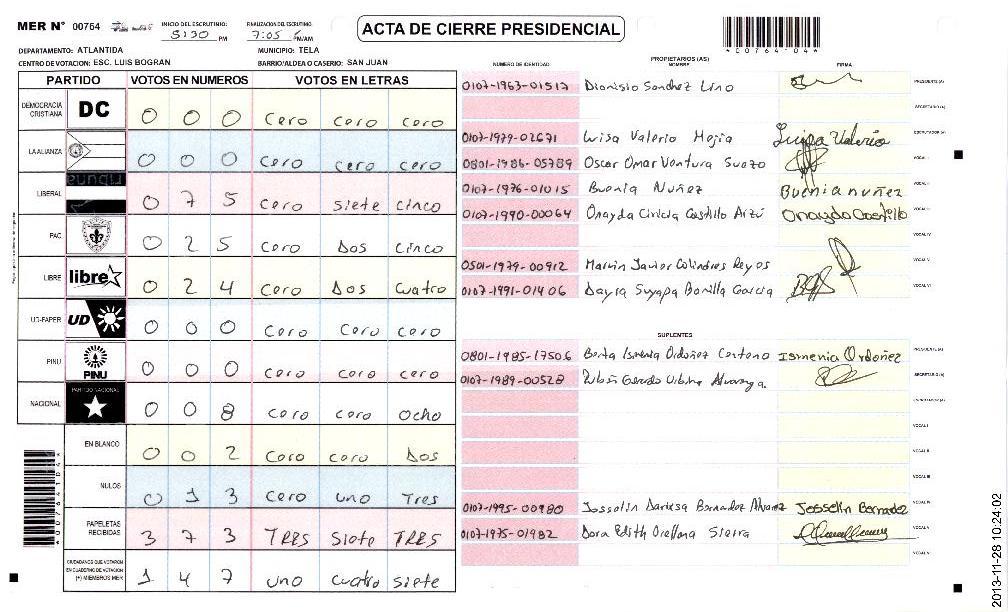 MER N° 00764 INICIO DEL ESCRUTINIO: 5:30 PM FINALIZACION DEL ESCRUTINIO: 7:05 PM/AM
ACTA DE CIERRE PRESIDENCIAL
*00764104*
DEPARTAMENTO: ATLANTIDA MUNICIPIO: TELA
CENTRO DE VOTACION: ESC. LUIS BOGRAN BARRIO/ALDEA O CASERIO: SAN JUAN
PARTIDO VOTOS EN NUMEROS VOTOS EN LETRAS
DEMOCRACIA CRISTIANA DC 0 0 0 Cero Cero Cero
LA ALIANZA 0 0 0 Cero cero cero
LIBERAL 0 7 5 Cero Siete Cinco
PAC 0 2 5 Cero Dos Cinco
LIBRE libre 0 2 4 Cero Dos Cuatro
UD-FAPER UD 0 0 0 Cero Cero Cero
PINU PINU 0 0 0 Cero Cero Cero
NACIONAL PARTIDO NACIONAL 0 0 8 Cero Cero Ocho
EN BLANCO 0 0 2 Cero Cero Dos
NULOS 0 1 3 Cero uno Tres
PAPELETAS RECIBIDAS 3 7 3 TRES Siete TRES
CIUDADANOS QUE VOTARON EN CUADERNO DE VOTACION (+) MIEMBROS MER 1 4 7 uno Cuatro Siete
PROPIETARIOS (AS)
NUMERO DE IDENTIDAD NOMBRE FIRMA
0107-1963-01517 Dionisio Sanchez Lino PRESIDENTE (A)
SECRETARIO (A)
0107-1979-02671 Luisa Valerio Mejia Luisa Valerio ESCRUTADOR (A)
0801-1986-05789 Oscar Omar Ventura Suazo VOCAL I
0107-1976-01015 Buenia Nuñez Buenia nuñez VOCAL II
0107-1990-00064 Onayda Castillo Arzú Onayda Castillo VOCAL III
VOCAL IV
0501-1979-00912 Marvin Javier Colindres Reyes VOCAL V
0107-1991-01406 Dayra Suyapa Bonilla Garcia VOCAL VI
SUPLENTES
0801-1985-17506 Berta Ismenia Ordoñez Centeno Ismenia Ordoñez PRESIDENTE (A)
0107-1989-00528 Rubén Gerardo Urbina SECRETARIO (A)
ESCRUTADOR (A)
VOCAL I
VOCAL II
VOCAL III
0107-1995-00980 Josselin Bernadez Alvarez Josselin Bernadez VOCAL IV
0107-1975-01982 Dora Edith Orellana Sierra VOCAL V
VOCAL VI
*00764104*
2013-11-28 10:24:02